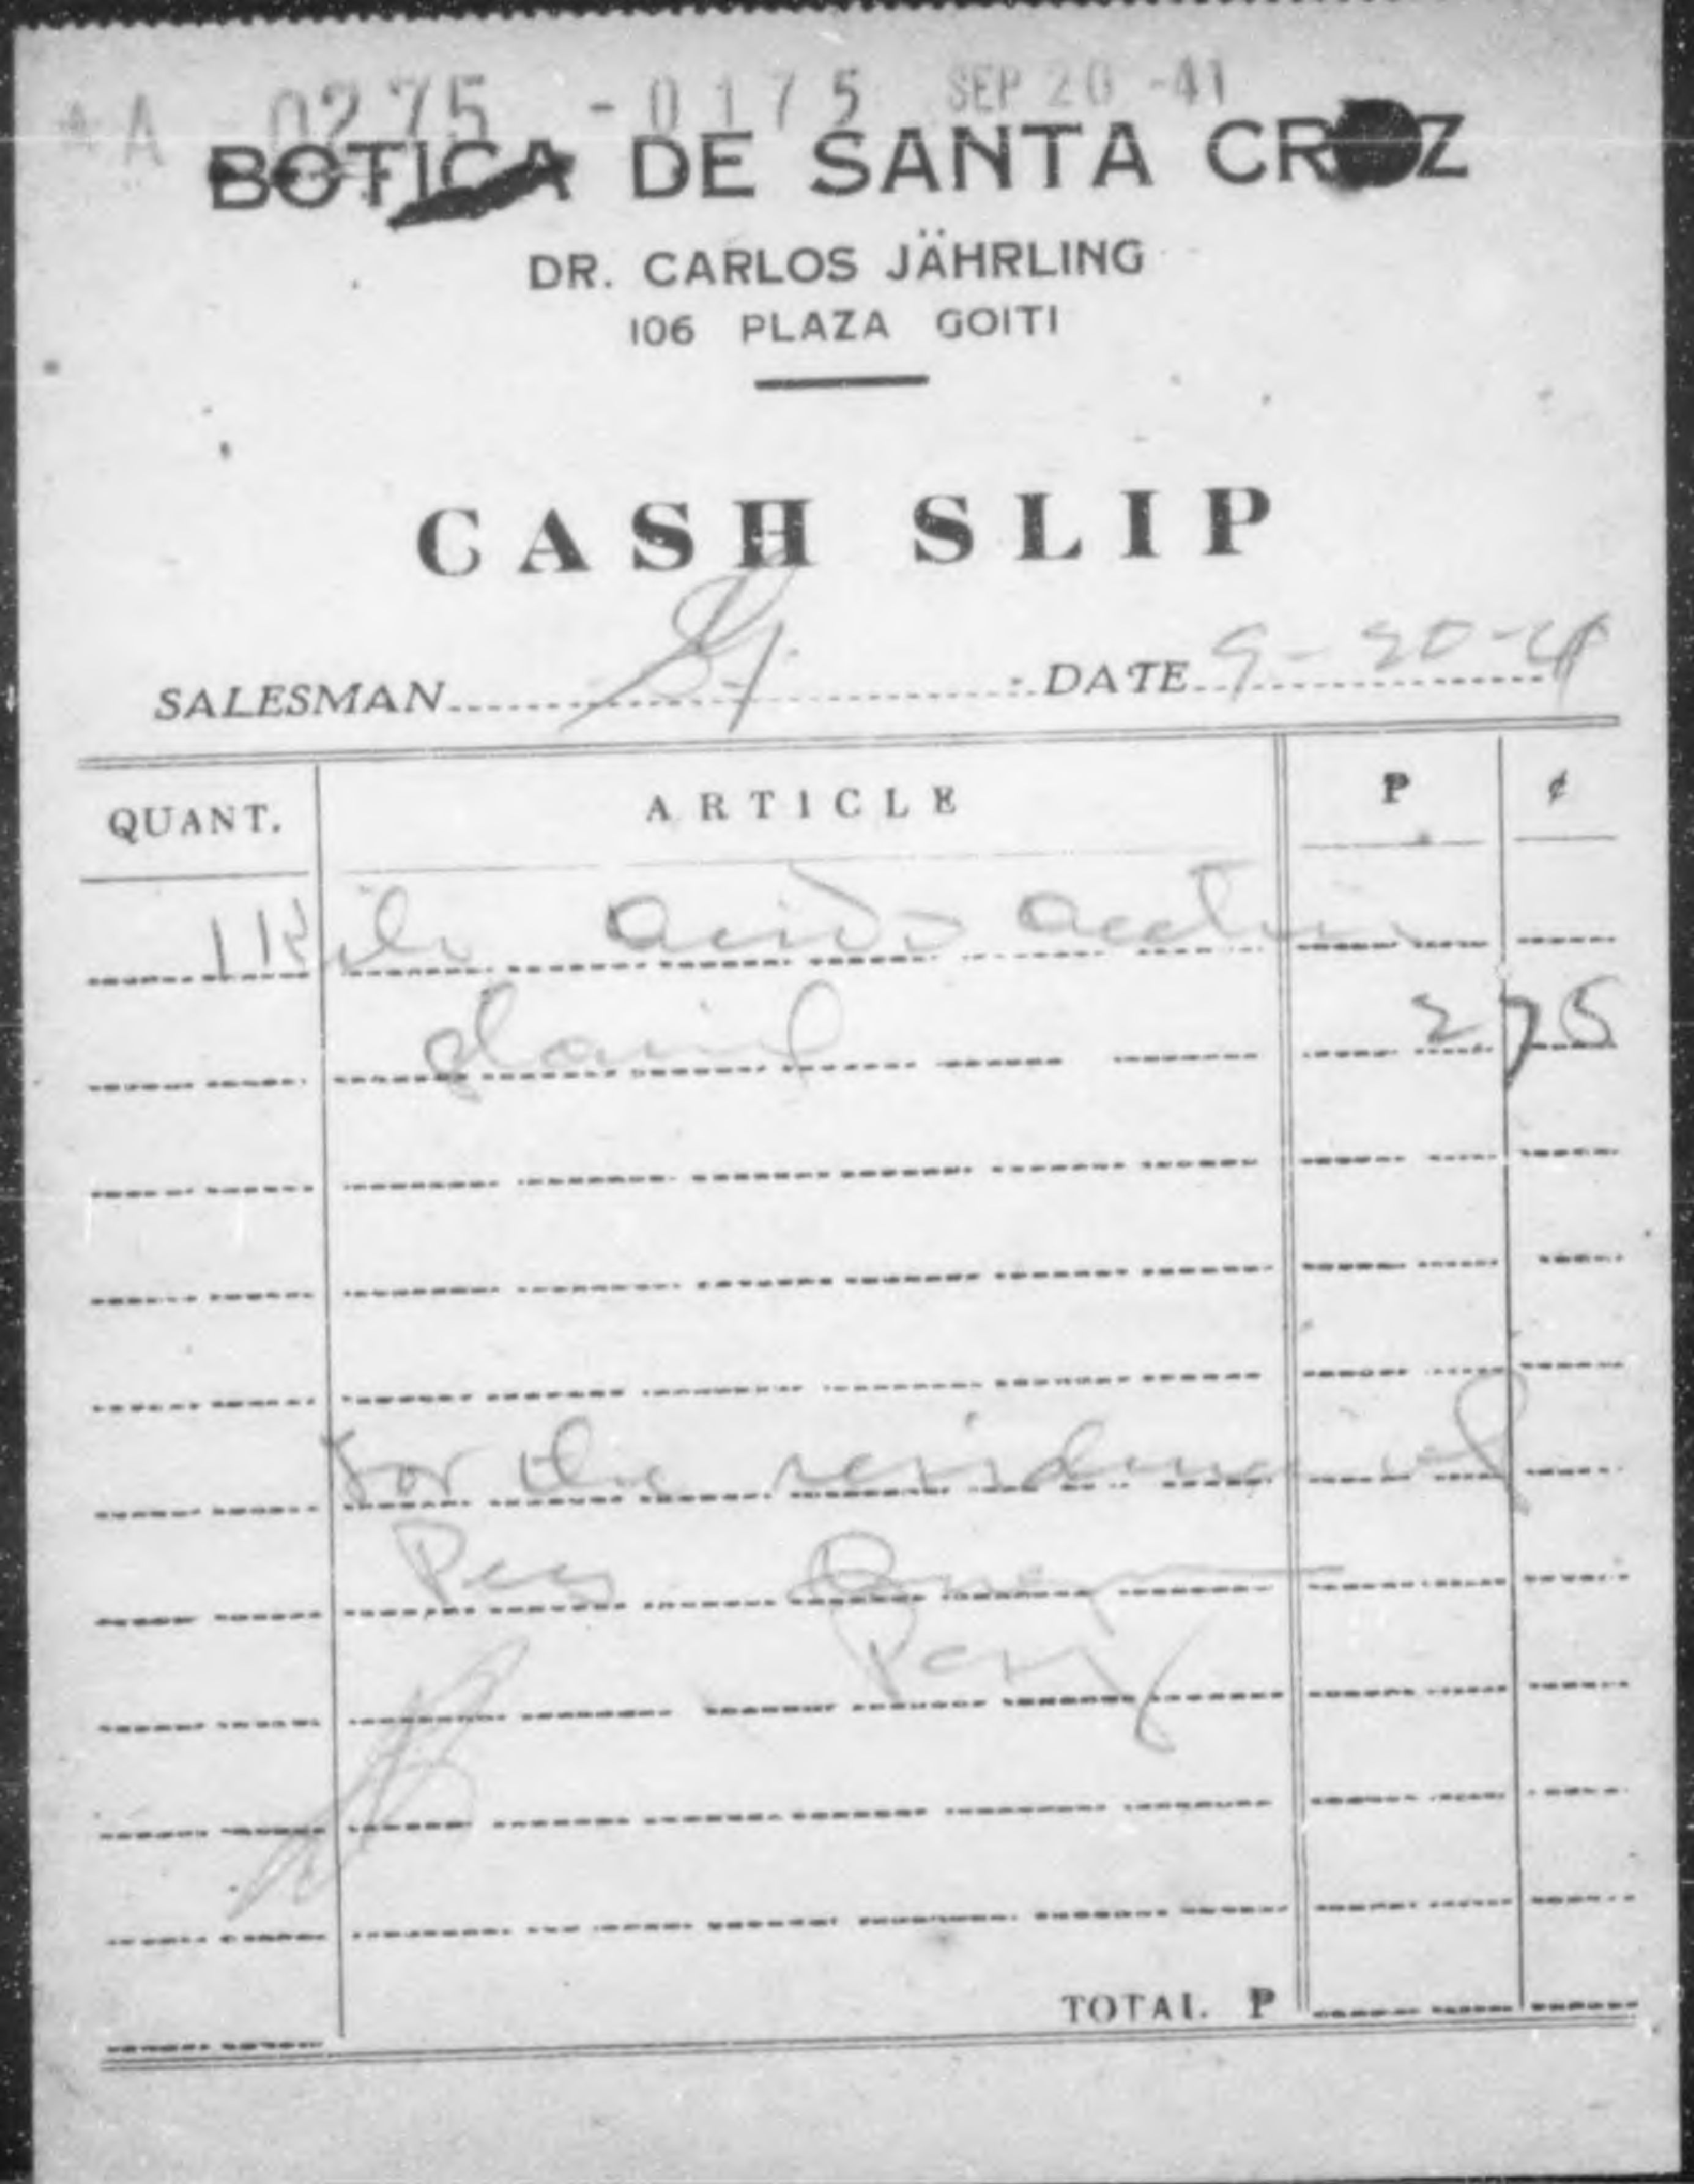 A 0275 - 0175 SEP 20 -41
BOTICA DE SANTA CRUZ
DR. CARLOS JÄHRLING
106 PLAZA GOITI
CASH SLIP
SALESMAN DATE 9-20-41
QUANT. ARTICLE ₱ ¢
1 Kilo acido acetic
glacial 2 75
For the residence of
Pres Quezon
Pery
TOTAL ₱